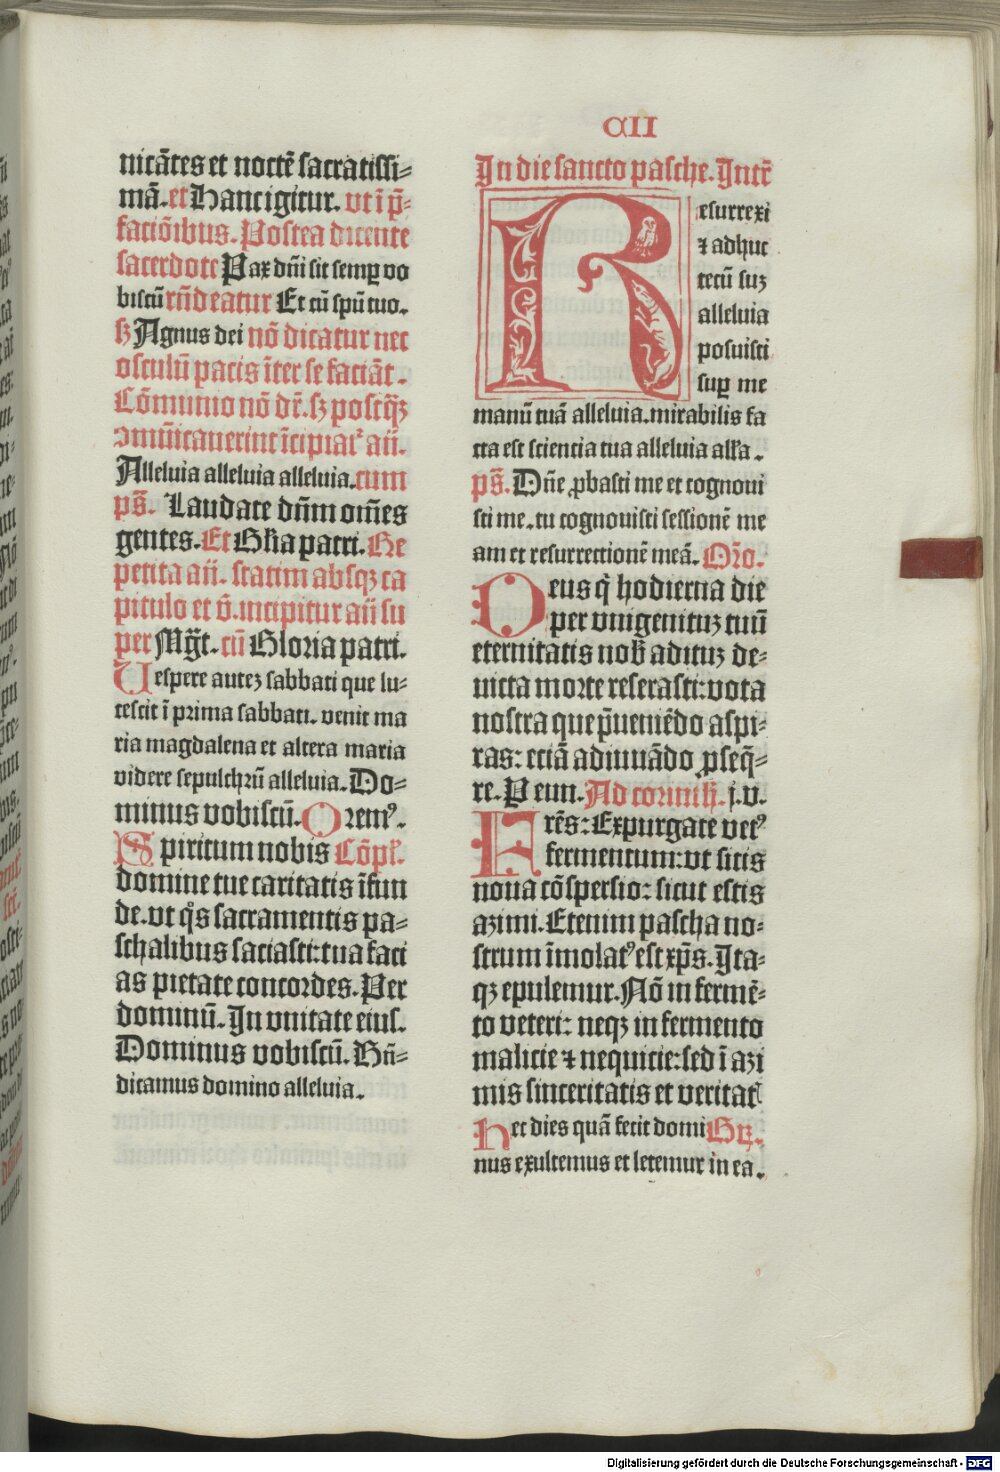 CII
nicātes et noctē sacratissi-
mā. et Hanc igitur. vt ī p̄-
faciōibus. Postea dicente
sacerdote Pax dn̄i sit semp̲ vo
biscū rn̄deatur Et cū spū tuo.
sꝫ Agnus dei nō dicatur nec
osculū pacis īter se faciāt.
Cōmunio nō dr̄. sꝫ postq̄ꝫ
ꝯmūicauerint īcipiat᷒ an̄.
Alleluia alleluia alleluia. cum
ps̄. Laudate dn̄m om̄es
gentes. Et Gl'ia patri. Re
petita an̄. statim absqꝫ ca
pitulo et v̄. incipitur an̄ su
per Mg̅t. cū Gloria patri.
Uespere auteꝫ sabbati que lu-
cescit ī prima sabbati. venit ma
ria magdalena et altera maria
videre sepulchrū alleluia. Do-
minus vobiscū. Orem᷒.
Spiritum nobis Cōpl'.
domine tue caritatis īfun
de. vt q̊s sacramentis pa-
schalibus saciasti: tua faci
as pietate concordes. Per
dominū. In vnitate eius.
Dominus vobiscū. Bn̄-
dicamus domino alleluia.
In die sancto pasche. Intr̄
Resurrexi
⁊ adhuc
tecū suꝫ
alleluia
posuisti
sup̲ me
manū tuā alleluia. mirabilis fa
cta est sciencia tua alleluia all'a.
ps̄. Dn̄e ꝓbasti me et cognoui
sti me. tu cognouisti sessionē me
am et resurrectionē meā. Or̄o.
Deus q̇ hodierna die
per vnigenituꝫ tuū
eternitatis nob᷒ adituꝫ de-
uicta morte reserasti: vota
nostra que p̄ueniēdo aspi-
ras: eciā adiuuādo ꝓseq̄-
re. P eun. Ad corinth̄. j. v.
Frēs: Expurgate vet᷒
fermentum: vt sitis
noua cōspersio: sicut estis
azimi. Etenim pascha no-
strum īmolat᷒ est xp̄s. Ita-
qꝫ epulemur. Nō in fermē-
to veteri: neqꝫ in fermento
malicie ⁊ nequicie: sed ī azi
mis sinceritatis et veritatꝭ
Hec dies quā fecit domi Gꝝ.
nus exultemus et letemur in ea.
Digitalisierung gefördert durch die Deutsche Forschungsgemeinschaft - DFG